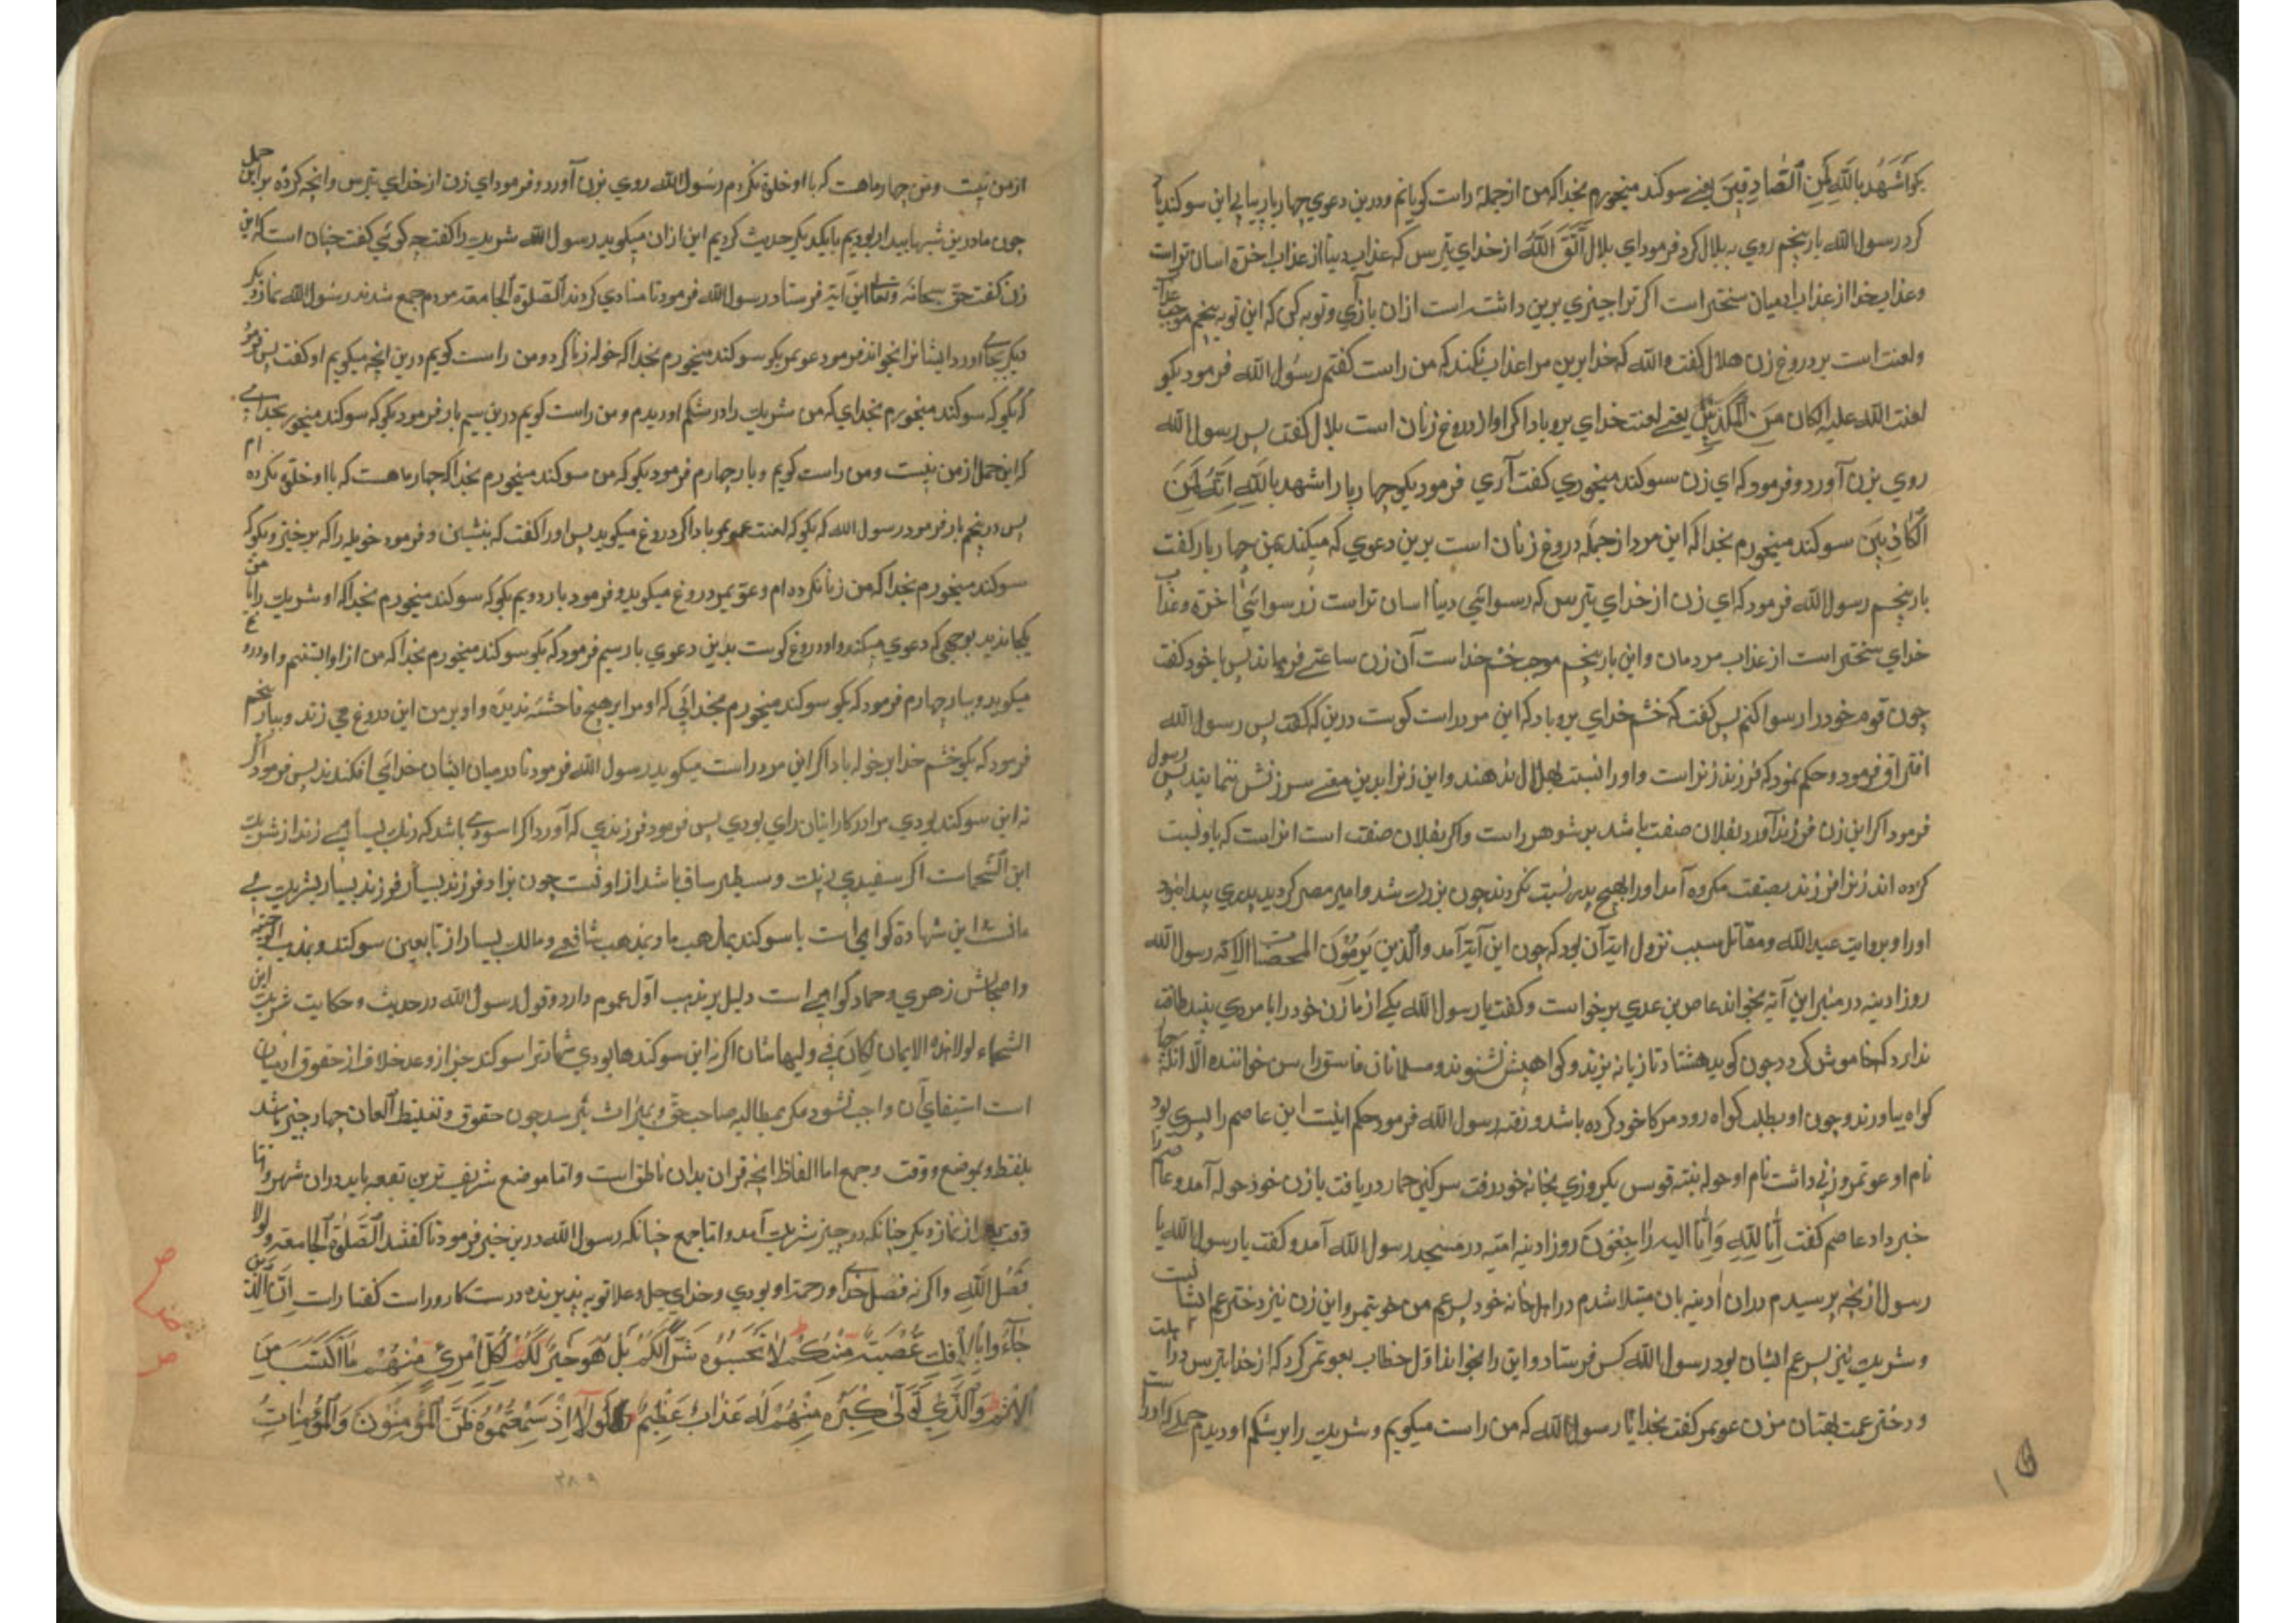 بکو اَشْهَدُ بِاللَّهِ لَمِنَ ٱلصَّادِقِينَ یعنی سوکند میخورم بخدا که من از جمله راست کویانم ودرین دعوی چهار بار پیاپی این سوکند یاد
کرد رسول الله بار پنجم روی به بلال کرد فرمود ای بلال اتّق اللّه از خدای بترس که عذاب دنیا از عذاب اخرة اسان تر است
وعذاب خدا از عذاب ادمیان سختر است اکر ترا چیزی برین داشته است ازان بازآی وتوبه کن که این توبه پنجم موجب عذاب
ولعنت است بر دروغ زن هلال کفت والله که خدا برین مرا عذاب نکند که من راست کفتم رسول الله فرمود بکو
لعنت الله علیه ان کان من الکذبین یعنی لعنت خدای برو باد اکر او از دروغ زنان است بلال کفت پس رسول الله
روی بزن آورد وفرمود که ای زن سوکند میخوری کفت آری فرمود بکو چهار بار اشهد بالله انّه لَمِنَ
الکاذبین سوکند میخورم بخدا که این مرد از جمله دروغ زنان است برین دعوی که میکند بمن چهار بار کفت
بار پنجم رسول الله فرمود که ای زن از خدای بترس که رسوائی دنیا اسان تر است ز رسوائی اخرة وعذاب
خدای سختر است از عذاب مردمان واین بار پنجم موجب خشم خدا است آن زن ساعتی فرو ماند پس با خود کفت
چون قوم خود را رسوا کنم پس کفت که خشم خدای برو باد که این مرد راست کوست درین که کفت پس رسول الله
افتراق فرمود وحکم نمود که فرزند زنراست واو را نسبت بهلال ندهند واین زنرا بدین معنی سرزنش ننمایند پس رسول
فرمود اکر این زن فرزند آورد بفلان صفت باشد بر شوهر راست واکر بفلان صفت است انراست که باو نسبت
کرده اند زنرا فرزند بصفت مکروه آمد اورا بهیچ پدر نسبت نکردند چون بزرک شد وامیر مصر کردید پدری پیدا نبود
اورا وبروایت عبدالله ومقاتل سبب نزول ایة آن بود که چون این آیة آمد والّذین یرمون المحصنات الایه رسول الله
روز ادینه در منبر این آیة بخواند عاصم بن عدی برخواست وکفت یا رسول الله یکی از ما زن خود را با مردی بیند طاقت
ندارد که خاموش کردد چون کوید هشتاد تازیانه بزنند وکواهیش نشنوند ومسلمانان فاسق خواننده الّا انکه چهار
کواه بیاورند وچون او بطلب کواه رود مرد کار خود کرده باشد ورفته رسول الله فرمود حکم اینست این عاصم را پسری بود
نام او عویمر وزنی داشت نام او خوله بنته قیس یکروزی بخانه خود رفت سرکین حمار دریافت با زن خود خوله آمد وعاصم را
خبر داد عاصم کفت اِنّا لِلّهِ وَاِنّا الیه رٰاجِعُونَ روز ادینه امتیه در مسجد رسول الله آمد وکفت یا رسول الله یا
رسول از نچه پرسیدم دران ادینه بان مبتلا شدم در اهل خانه خود پسر عم من عویمر واین زن نیز دختر عم ایشانست
وشریک نیز پسر عم ایشان بود رسول الله کس فرستاد واین را بخواند اول خطاب بعویمر کرد که از خدا بترس درا
ودختر عمت بهتان مزن عویمر کفت بخدا یا رسول الله که من راست میکویم وشریک را بر شکم او دیدم
ازمن نیست ومن چهار ماهست که با او خلق نکردم رسول الله روی بزن آورد وفرمود ای زن از خدای بترس وانچه کرده بر این حمل
چون ما درین شبها بیدار بودیم با یکدیکر حدیث کردیم این ازان میکوید رسول الله شریک را کفت چه کوئی کفت چنان است که این
زن کفت حق سبحانه وتعالی این آیة فرستاد رسول الله فرمود تا منادی کردند الصلوة الجامعة مردم جمع شدند رسول الله نماز دیکر
بجای اورد وایشانرا بخواند فرمود عویمر بکو سوکند میخورم بخدا که خوله زنا کرد ومن راست کویم درین انچه میکویم او کفت پس فرمود
که بکو که سوکند میخورم بخدای که من شریک را در شکم او دیدم ومن راست کویم درین سیم بار فرمود بکو که سوکند میخورم بخدای
که این حمل از من نیست ومن راست کویم وبار چهارم فرمود بکو که من سوکند میخورم بخدا که چهار ماهست که با او خلق نکرده ام
پس در پنجم بار فرمود رسول الله که بکو که لعنت عویمر باد اکر دروغ میکوید پس اورا کفت که بنشین وفرمود خوله را که برخیز وبکو که
سوکند میخورم بخدا که من زنا نکرده ام وعویمر دروغ میکوید وفرمود بار دویم بکو که سوکند میخورم بخدا که او شریک را با من
یکجا ندید بوجهی که دعوی میکند واو دروغ کوست بدین دعوی بار سیم فرمود که بکو سوکند میخورم بخدا که من از او ابستنم واو دروغ
میکوید وبار چهارم فرمود که بکو سوکند میخورم بخدائی که او مرا بر هیچ فاحشه ندیده واو بر من این دروغ می زند وببار پنجم
فرمود که بکو خشم خدا بر خوله باد اکر این مرد راست میکوید رسول الله فرمود تا در میان ایشان جدائی افکندند پس فرمود اکر
نه این سوکند بودی مرا در کار ایشان رای بودی پس فرمود فرزندی که آورد اکر اسود باشد که رنک بسیاهی زند از شریک
ابن السحماست اکر سفیدی رنک وسطبر ساق باشد از او نیست چون بزاد فرزند بسیار بشریک می
مانست این شهادة کواهی است یا سوکند بمذهب ما وبمذهب شافعی ومالک بسیار از تابعین سوکند وبمذهب ابو حنیفه
واصحابش زهری وحماد کواهی است دلیل بر مذهب اول عموم دارد وقول رسول الله در حدیث وحکایت شریک ابن
السحماء لولا هذه الایمان لکان فی ولها شان اکر نه این سوکندها بودی
است استیفای آن واجب نشود مکر بمطالبه صاحب حق وبمیراث برسد چون حقوق وتغلیظ العان چهار چیز باشد
بلفظ وبموضع ووقت وجمع اما الفاظ انچه قران بدان ناطق است واما موضع شریف ترین بقعه باید دران شهر واما
وقت بعد از نماز دیکر چنانکه در خبر شریک آمد واما جمع چنانکه رسول الله درین خبر فرمود تا کفتند الصَّلوٰة الجامعة ولولا
فَضْلُ اللّهِ واکر نه فضل خدا ورحمت او بودی وخدای جل وعلا توبه پذیرنده درست کار وراست کفتار است اِنَّ الَّذِينَ
جَآءُوا بِالْإِفْكِ عُصْبَةٌ مِّنْكُمْ لَا تَحْسَبُوهُ شَرًّا لَّكُمْ بَلْ هُوَ خَيْرٌ لَّكُمْ لِكُلِّ امْرِئٍ مِّنْهُمْ مَا اكْتَسَبَ مِنَ
الْإِثْمِ وَالَّذِي تَوَلَّىٰ كِبْرَهُ مِنْهُمْ لَهُ عَذَابٌ عَظِيمٌ لَوْلَا إِذْ سَمِعْتُمُوهُ ظَنَّ الْمُؤْمِنُونَ وَالْمُؤْمِنَاتُ